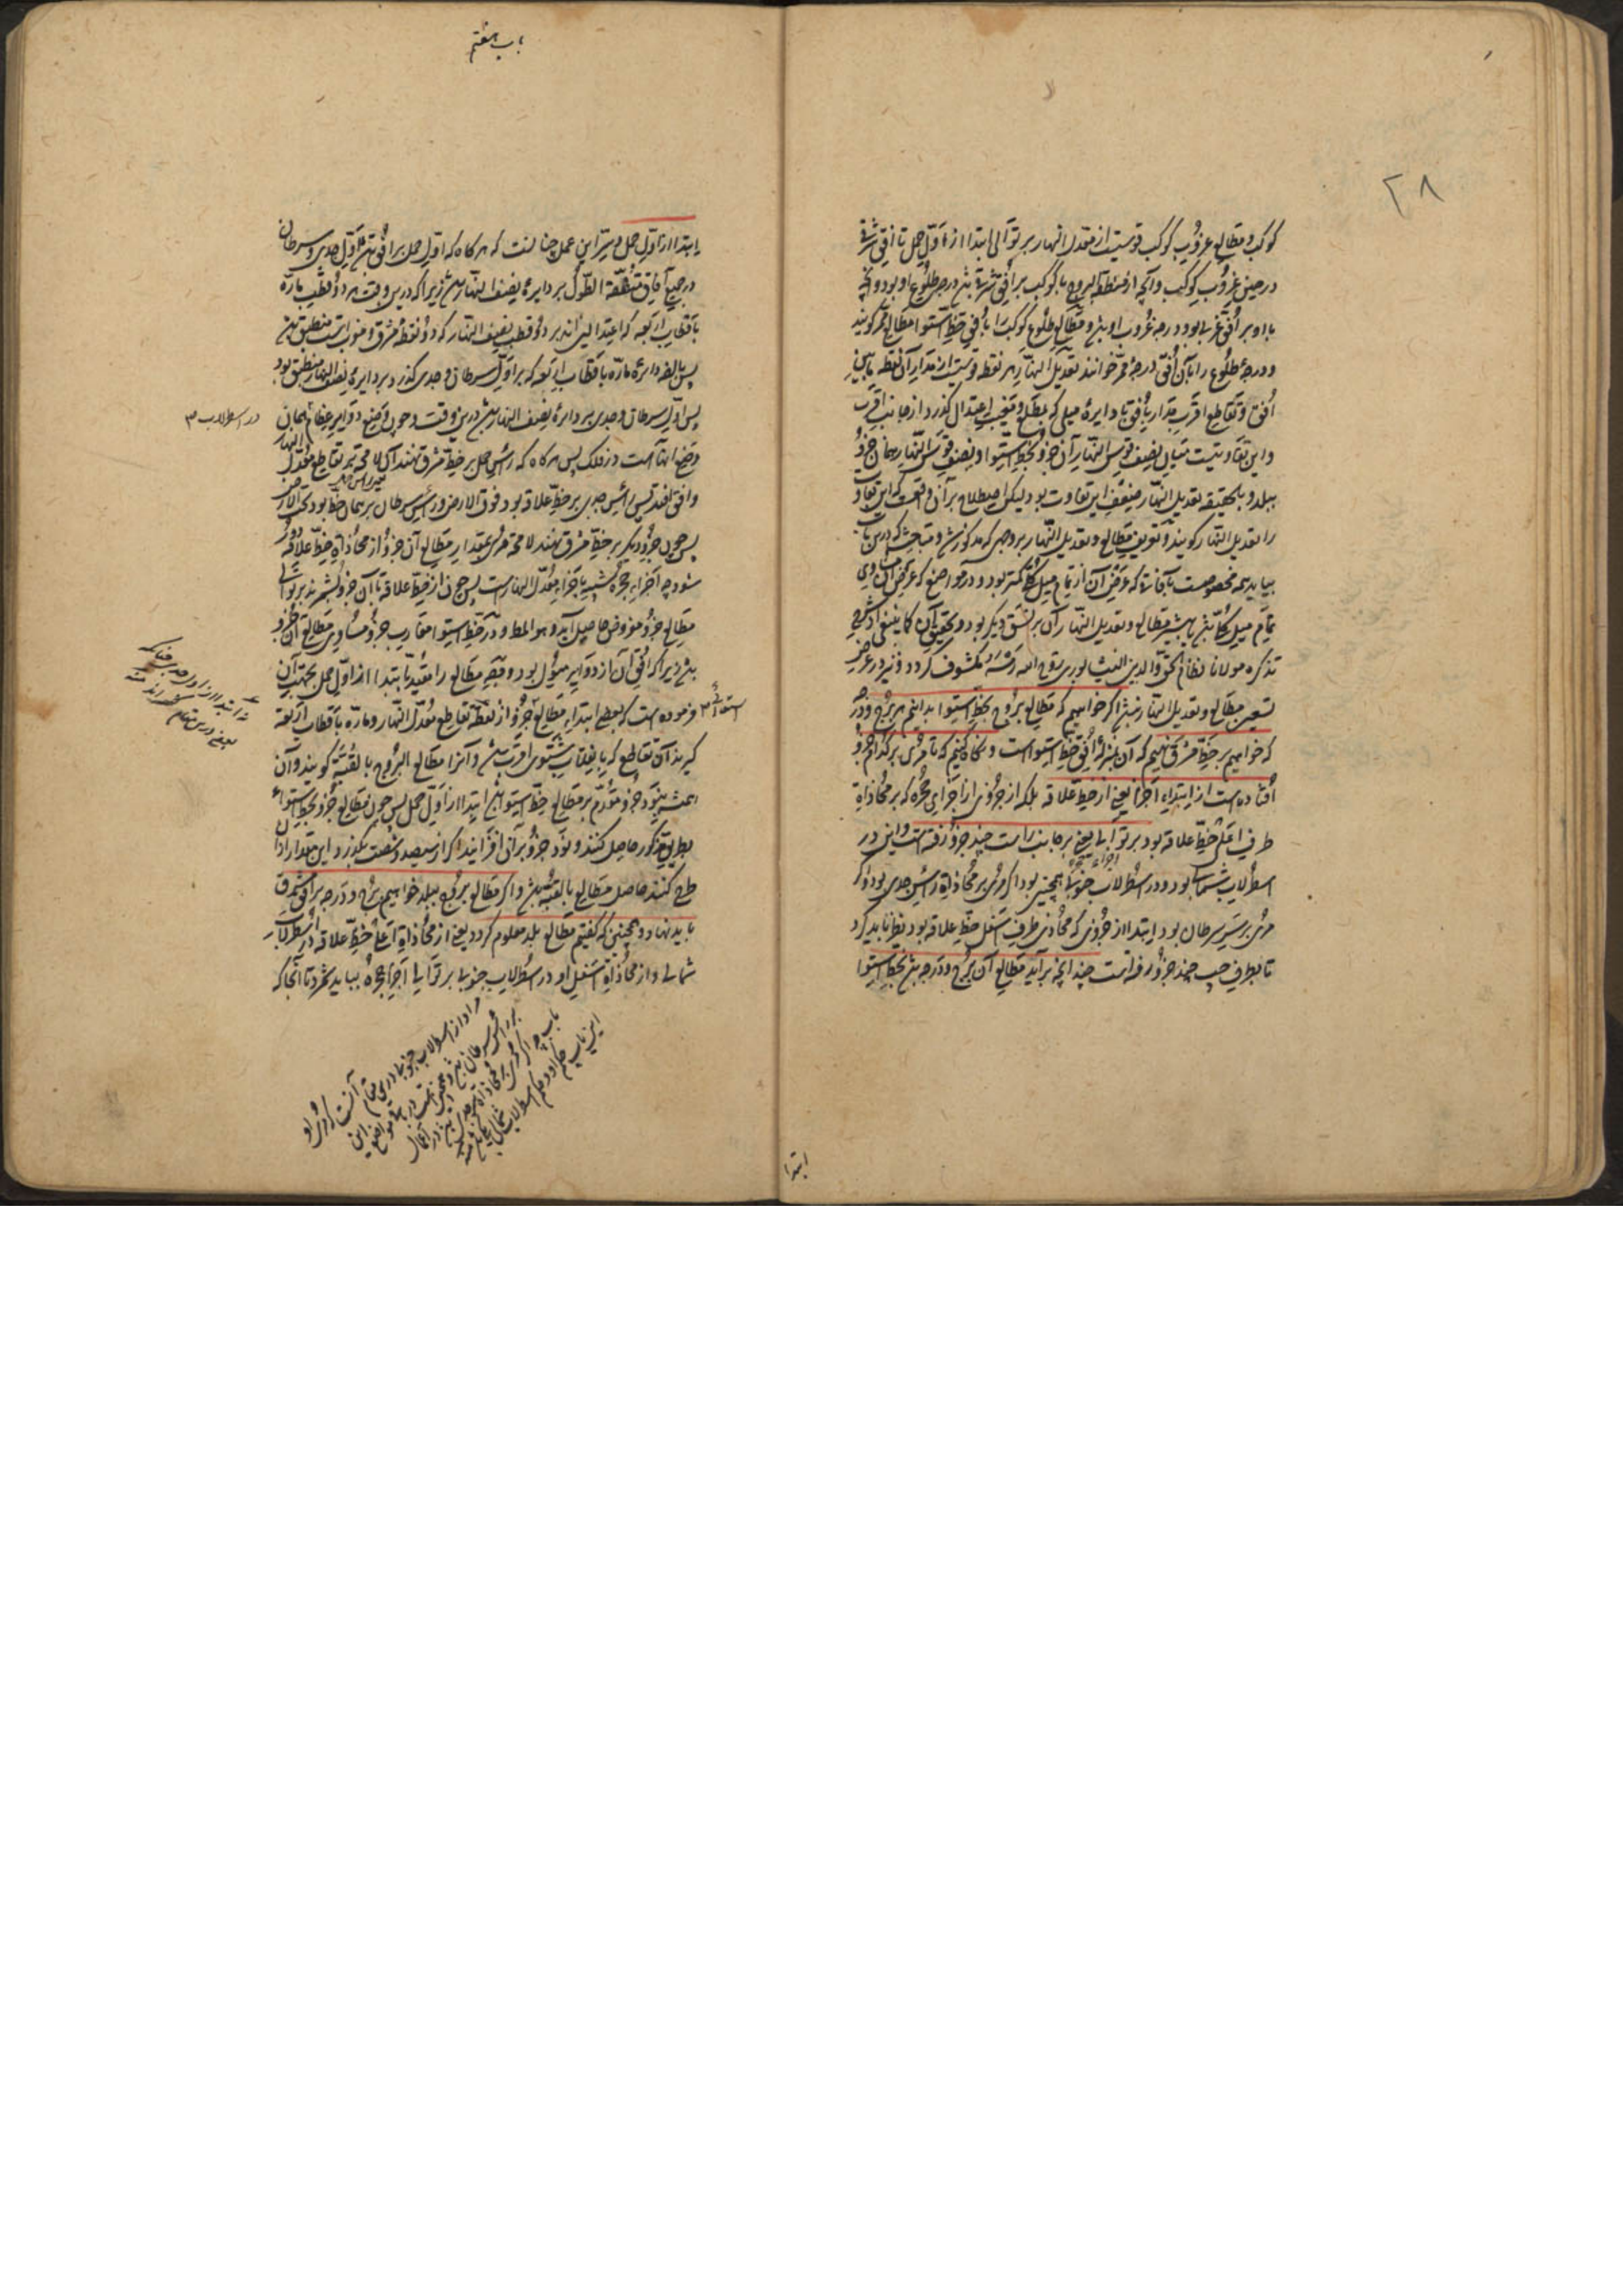 ٢٨
کوکب و مطالع غروب کوکب قوسیست از معدل النهار بر توالی ابتدا از اول حمل تا افق شرقی
در حین غروب کوکب و آنچه از منطقة البروج با کوکب بر افق شرقی باشد درجه طلوع او بود و آنچه
با او بر افق غربی بود درجه غروب او باشد و مطالع طلوع کوکب را بافق خط استوا مطالع ممر گویند
و درجه طلوع را بآن افق درجه ممر خوانند تعدیل النهار هر نقطه قوسیست از مدار آن نقطه ما بین
افق و تقاطع اقرب مدار بافق با دایره میلی که بمطلع و مغیب اعتدال گذرد از جانب اقرب
و این تفاوتیست میان نصف قوس النهار آن جزو بخط استوا و نصف قوس النهار همان جزو
ببلد و بالحقیقه تعدیل النهار ضعف این تفاوت بود لیکن اصطلاح بر آن واقعست که این تفاوت
را تعدیل النهار گویند و تعریف مطالع و تعدیل النهار بر وجهی که مذکور شد و مباحثی که درین باب
بیاید همه مخصوصست بآفاقی که عرض آن از تمام میل کلی کمتر بود و در مواضع که عرض آن مساوی
تمام میل کلی باشد یا بیشتر مطالع و تعدیل النهار آن بر نسق دیگر بود و تحقیق آن کما ینبغی از شرح
تذکره مولانا نظام الحق والدین النیشابوری روح الله رمسه مکشوف گردد و نیز در عرض
تسعین مطالع و تعدیل النهار نباشد اگر خواهیم که مطالع بروج بخط استوا بدانیم هر برج و درجه
که خواهیم بر خط مشرق نهیم که آن بمنزله افق خط استواست و نگاه کنیم که تا مری بر کدام جزو
افتاده است از ابتداء اجزا یعنی از خط علاقه بلکه از جزوی از اجزای حجره که بر محاذاة
طرف اعلی خط علاقه بود بر توالی یعنی بر جانب راست چند جزو رفته است و این در
اسطرلاب شمالی بود و در اسطرلاب جنوبی همچنین بود اگر مری بر محاذاة راس جدی بود و اگر
مری بر سر سرطان بود ابتدا از جزوی که محاذی طرف اسفل خط علاقه بود نظر باید کرد
تا بطرف چپ چند جزو رفته است چندانچه برآید مطالع آن برج و درجه باشد بخط استوا
ابتدا
باب هفتم
یا ابتدا از اول حمل و سر این عمل چنانست که هرگاه که اول حمل بر افق باشد اول جدی و سرطان
در جمیع آفاق متفقة الطول بر دایره نصف النهار باشد زیرا که درین وقت هر دو قطب مارّه
باقطاب اربعه که اعتدالین اند بر دو قطب نصف النهار که دو نقطه مشرق و مغربست منطبق باشند
پس بالضروره دایره مارّه باقطاب اربعه که بر اول سرطان و جدی گذرد بر دایره نصف النهار منطبق بود
پس اول سرطان و جدی بر دایره نصف النهار باشد درین وقت و چون وضع دوایر عظام همان
در اسطرلاب
وضع آنهاست در فلک پس هرگاه که راس حمل بر خط مشرق نهند لا محاله بر تقاطع معدل النهار
وافق افتد پس راس جدی بر خط علاقه بود فوق الارض و راس سرطان بر همان خط بود تحت الارض
پس چون جزو دیگر بر خط مشرق نهند لا محاله مری بمقدار مطالع آن جزو از محاذاة خط علاقه دور
شود چه اجزاء حجره شبیه باجزاء معدل النهارست پس چون از خط علاقه تا آن جزو بشمرند بر توالی
مطالع جزو مفروض حاصل آید و هو المط و در خط استوا مغارب جزو مساوی مطالع آن جزو
باشد زیرا که افق آن از دوایر میول بود و قید مطالع را مقید بابتدا از اول حمل بجهت آن
فرموده است که بعضی ابتداء مطالع جزو از نقطه تقاطع معدل النهار و مارّه باقطاب اربعه
گیرند آن تقاطع که بانقلاب شتوی اقرب باشد و آنرا مطالع البروج بالقبّه گویند و آن
همیشه بنود جزو مقدم بر مطالع خط استوا باشد ابتدا از اول حمل پس چون مطالع جزو بخط استوا
بطریق مذکور حاصل کنند و نود جزو بر آن افزایند اگر از سیصد و شصت بگذرد این مقدار از آن
طرح کنند حاصل مطالع بالقبه باشد و اگر مطالع بروج ببلد خواهیم برج و درجه بر افق مشرق
باید نهاد و همچنین که گفتیم مطالع بلد معلوم گردد یعنی از محاذاة اعلی خط علاقه در اسطرلاب
شمالی و از محاذاة اسفل او در اسطرلاب جنوبی بر توالی اجزاء حجره بباید شمرد تا آنجا که
مراد از اسطرلاب جنوبی درین مقام آنست که مری او
بر راس سرطان باشد و همچنین است در باقی مواضع این
باب